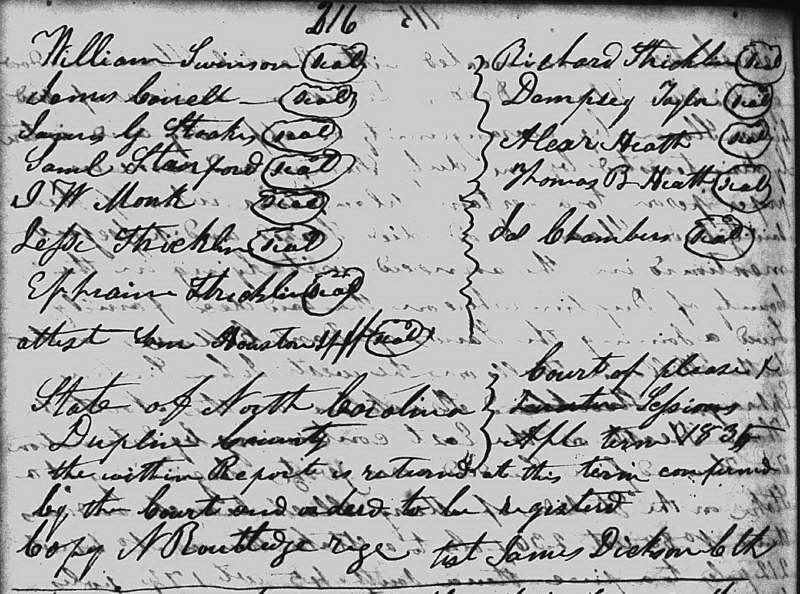 216
William Swinson seal
James Carrell seal
James G Stokes seal
Saml Stanford seal
J W Monk seal
Jesse Stricklin seal
Ephraim Stricklin seal
attest Sam Houston Shff seal
Richard Stricklin seal
Dempsey Taylor seal
Alexr Heath seal
Thomas B Heath seal
Jas Chambers seal
State of North Carolina
Duplin County
Court of pleas &
Quarter Sessions
Apl term 1835
the within Report is returned at this term confirmed
by the Court and ordered to be registerd
Copy A Routledge rige test James Dickson Clk